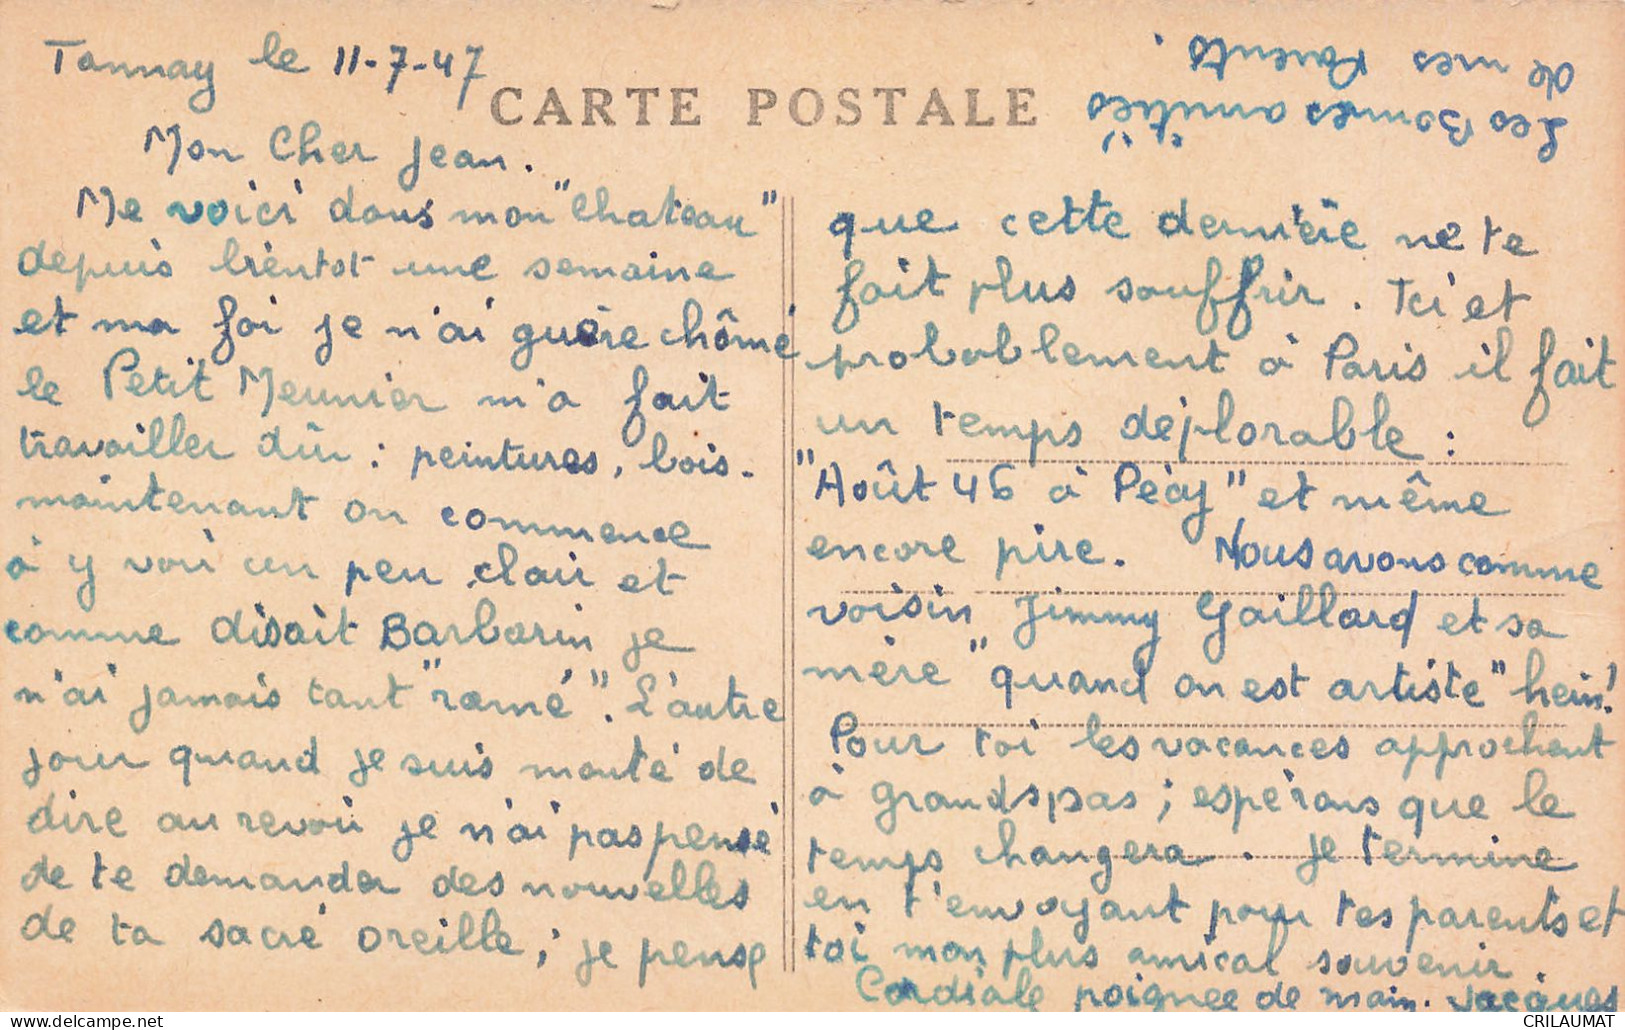 Tannay le 11-7-47
CARTE POSTALE
Mon Cher Jean.
Me voici dans mon "Chateau"
depuis bientot une semaine
et ma foi je n'ai guère chômé
le Petit Meunier m'a fait
travailler dûr : peintures, bois.
maintenant on commence
à y voir un peu clair et
comme disait Barbarin je
n'ai jamais tant "ramé". L'autre
jour quand je suis monté de
dire au revoir je n'ai pas pensé
de te demander des nouvelles
de ta sacré oreille ; je pense
que cette dernière ne te
fait plus souffrir. Ici et
probablement à Paris il fait
un temps déplorable :
"Août 46 à Pécy" et même
encore pire. Nous avons comme
voisin Jimmy Gaillard et sa
mère "quand on est artiste" hein!
Pour toi les vacances approchent
à grands pas ; espérons que le
temps changera. Je termine
en t'envoyant pour tes parents et
toi mon plus amical souvenir.
Cordiale poignee de main. Jacques
Les Bonnes amitiés
de mes Parents.
CRILAUMAT